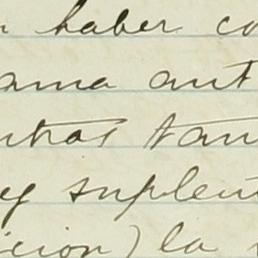 haber co
ama ant
ntras tan
ey suplent
icion) la